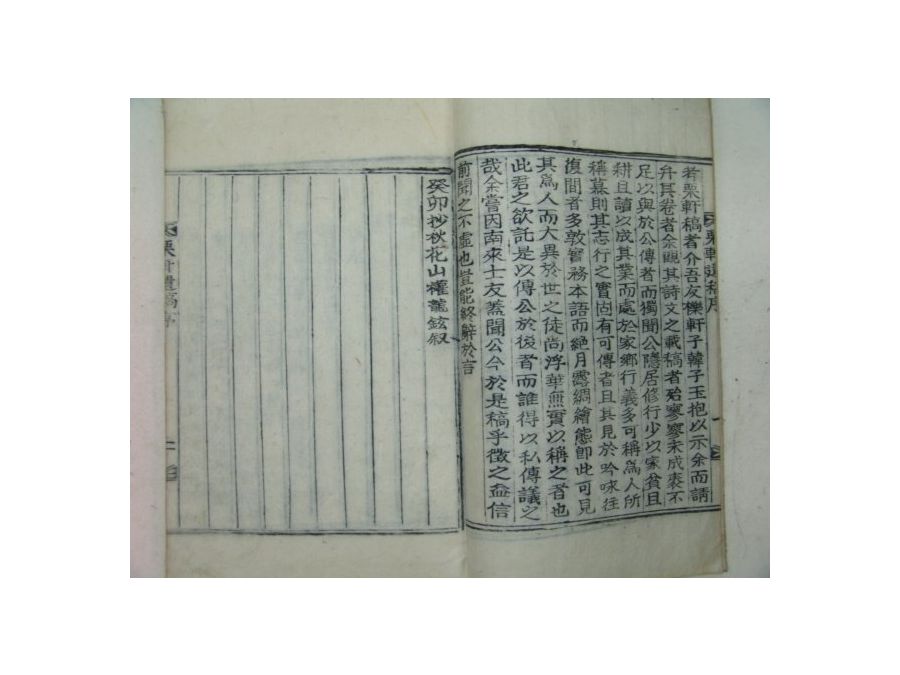 栗軒遺稿序
一
者栗軒稿者介吾友櫟軒子韓子玉抱以示余而請
弁其卷者余覸其詩文之載稿者殆寥寥未成袠不
足以與於公傳者而獨聞公隱居修行少以家貧且
耕且讀以成其業而處於家鄉行義多可稱爲人所
稱慕則其志行之實固有可傳者且其見於吟咏往
復間者多敦實務本語而絶月露綢繪態卽此可見
其爲人而大異於世之徒尚浮華無實以稱之者也
此君之欲託是以傳公於後者而誰得以私傳議之
哉余嘗因南來士友蓋聞公今於是稿乎徵之益信
前聞之不虛也豈能終辭於言
癸卯抄秋花山權龍鉉叙
栗軒遺稿序
二